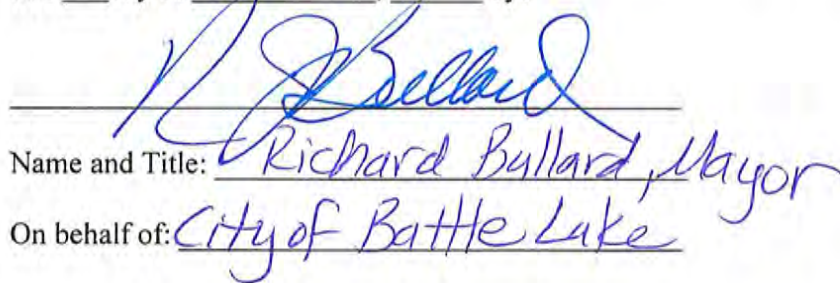 R Bullard
Name and Title: Richard Bullard, Mayor
On behalf of: City of Battle Lake